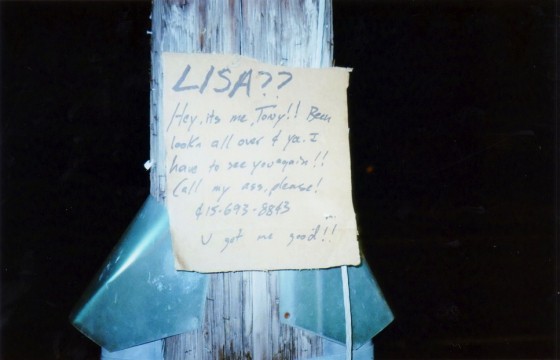 LISA??
Hey, its me, Tony!! Been
lookn all over 4 ya. I
have to see you again!!
Call my ass, please!
415-693-8843
U got me good!!